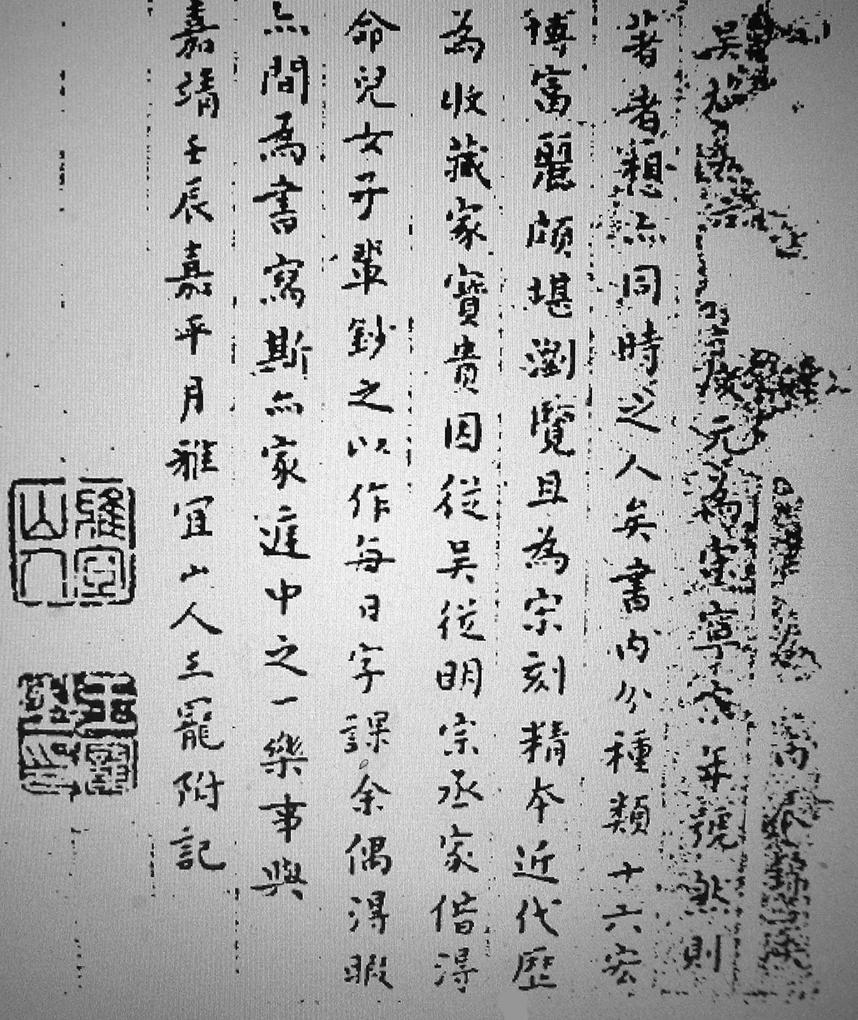 慶元為宋寧宗年號然則
著者想亦同時之人矣書內分種類十六宏
博富麗頗堪瀏覽且為宋刻精本近代歷
為收藏家寶貴因從吳從明宗丞家借得
命兒女子輩鈔之以作每日字課余偶得暇
亦間為書寫斯亦家庭中之一樂事與
嘉靖壬辰嘉平月雅宜山人王寵附記
雅宜山人